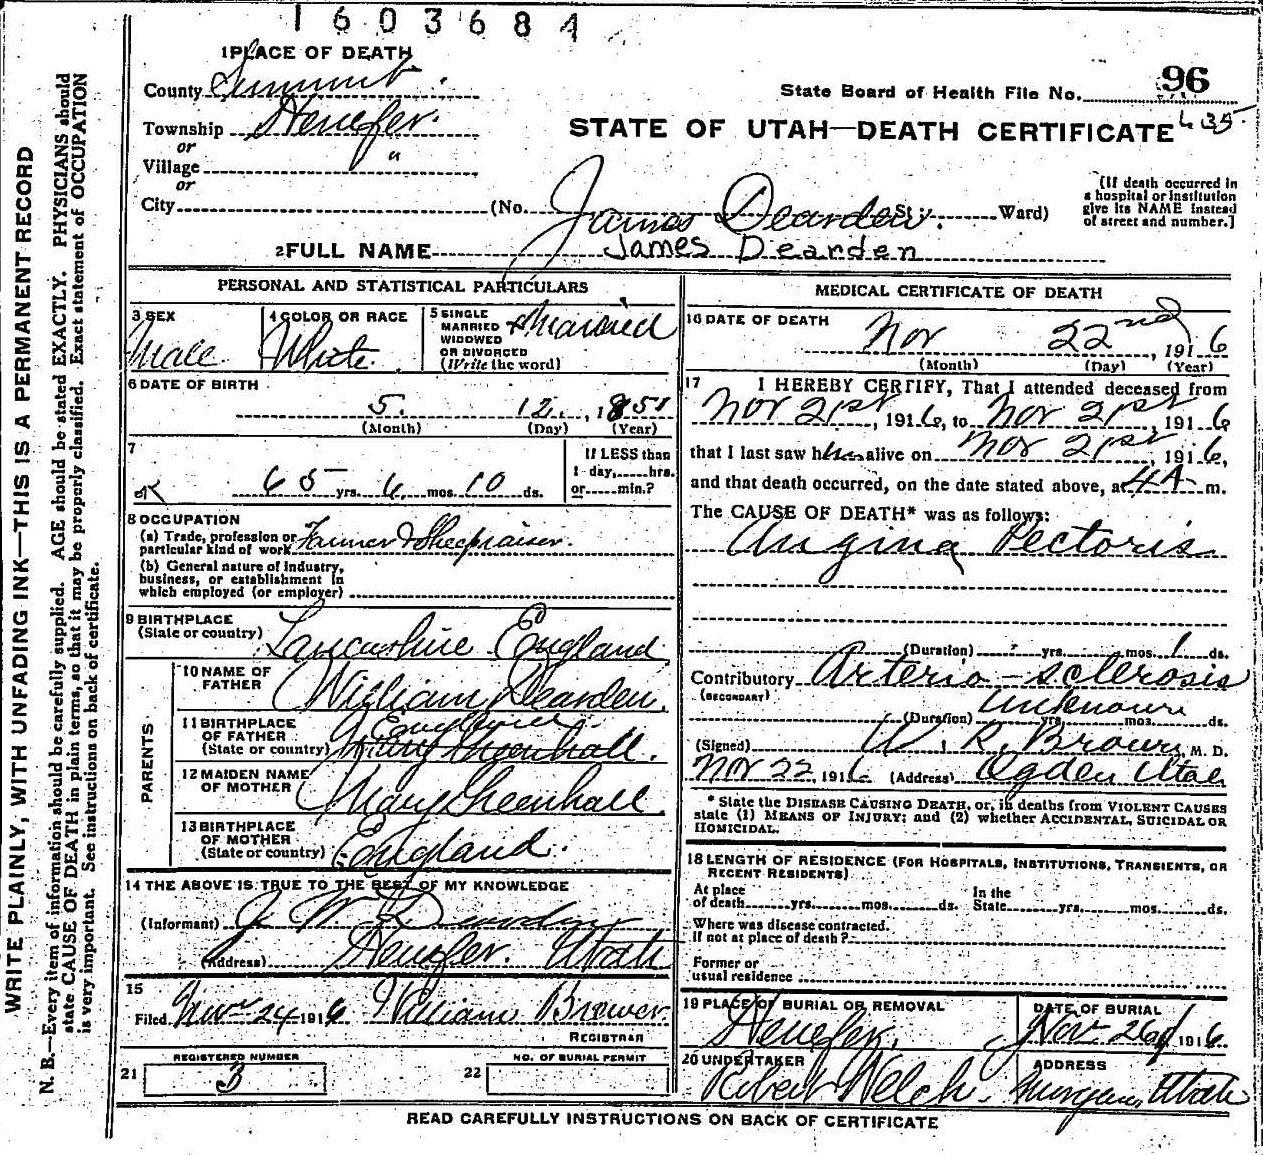 1603684
1 PLACE OF DEATH
County Summit
Township Henefer
or
Village "
or
City (No. St.; Ward)
State Board of Health File No. 96
435
STATE OF UTAH—DEATH CERTIFICATE
[If death occurred in
a hospital or institution
give its NAME instead
of street and number.]
James Dearden
2 FULL NAME James Dearden
PERSONAL AND STATISTICAL PARTICULARS
3 SEX
Male
4 COLOR OR RACE
White
5 SINGLE
MARRIED
WIDOWED
OR DIVORCED
(Write the word)
Married
6 DATE OF BIRTH
5. 12. , 1851
(Month) (Day) (Year)
7
65 yrs. 6 mos. 10 ds.
If LESS than
1 day, hrs.
or min.?
8 OCCUPATION
(a) Trade, profession or
particular kind of work Farmer & Sheepraiser.
(b) General nature of industry,
business, or establishment in
which employed (or employer)
9 BIRTHPLACE
(State or country) Lancashire England
PARENTS
10 NAME OF
FATHER William Dearden.
11 BIRTHPLACE
OF FATHER England
(State or country) Mary Greenhall.
12 MAIDEN NAME
OF MOTHER Mary Greenhall
13 BIRTHPLACE
OF MOTHER
(State or country) England.
14 THE ABOVE IS TRUE TO THE BEST OF MY KNOWLEDGE
(Informant) J W Dearden
(Address) Henefer. Utah
15
Filed Nov 24 1916 William Brewer
REGISTRAR
REGISTERED NUMBER
21 3
NO. OF BURIAL PERMIT
22
MEDICAL CERTIFICATE OF DEATH
16 DATE OF DEATH
Nov 22nd, 1916
(Month) (Day) (Year)
17 I HEREBY CERTIFY, That I attended deceased from
Nov 21st, 1916, to Nov 21st, 1916
that I last saw him alive on Nov 21st, 1916,
and that death occurred, on the date stated above, at 4 A m.
The CAUSE OF DEATH* was as follows:
Angina Pectoris
(Duration) yrs. mos. 1 ds.
Contributory Arterio-sclerosis
(SECONDARY)
Unknown
(Duration) yrs. mos. ds.
(Signed) W. R. Brown, M. D.
Nov 22, 1916 (Address) Ogden Utah
* State the DISEASE CAUSING DEATH, or, in deaths from VIOLENT CAUSES
state (1) MEANS OF INJURY; and (2) whether ACCIDENTAL, SUICIDAL OR
HOMICIDAL.
18 LENGTH OF RESIDENCE (FOR HOSPITALS, INSTITUTIONS, TRANSIENTS, OR
RECENT RESIDENTS)
At place In the
of death yrs. mos. ds. State yrs. mos. ds.
Where was disease contracted.
if not at place of death?
Former or
usual residence
19 PLACE OF BURIAL OR REMOVAL
Henefer.
DATE OF BURIAL
Nov 26 1916
20 UNDERTAKER
Robert Welch.
ADDRESS
Morgan, Utah
READ CAREFULLY INSTRUCTIONS ON BACK OF CERTIFICATE
WRITE PLAINLY, WITH UNFADING INK—THIS IS A PERMANENT RECORD
N. B.—Every item of information should be carefully supplied. AGE should be stated EXACTLY. PHYSICIANS should
state CAUSE OF DEATH in plain terms, so that it may be properly classified. Exact statement of OCCUPATION
is very important. See instructions on back of certificate.